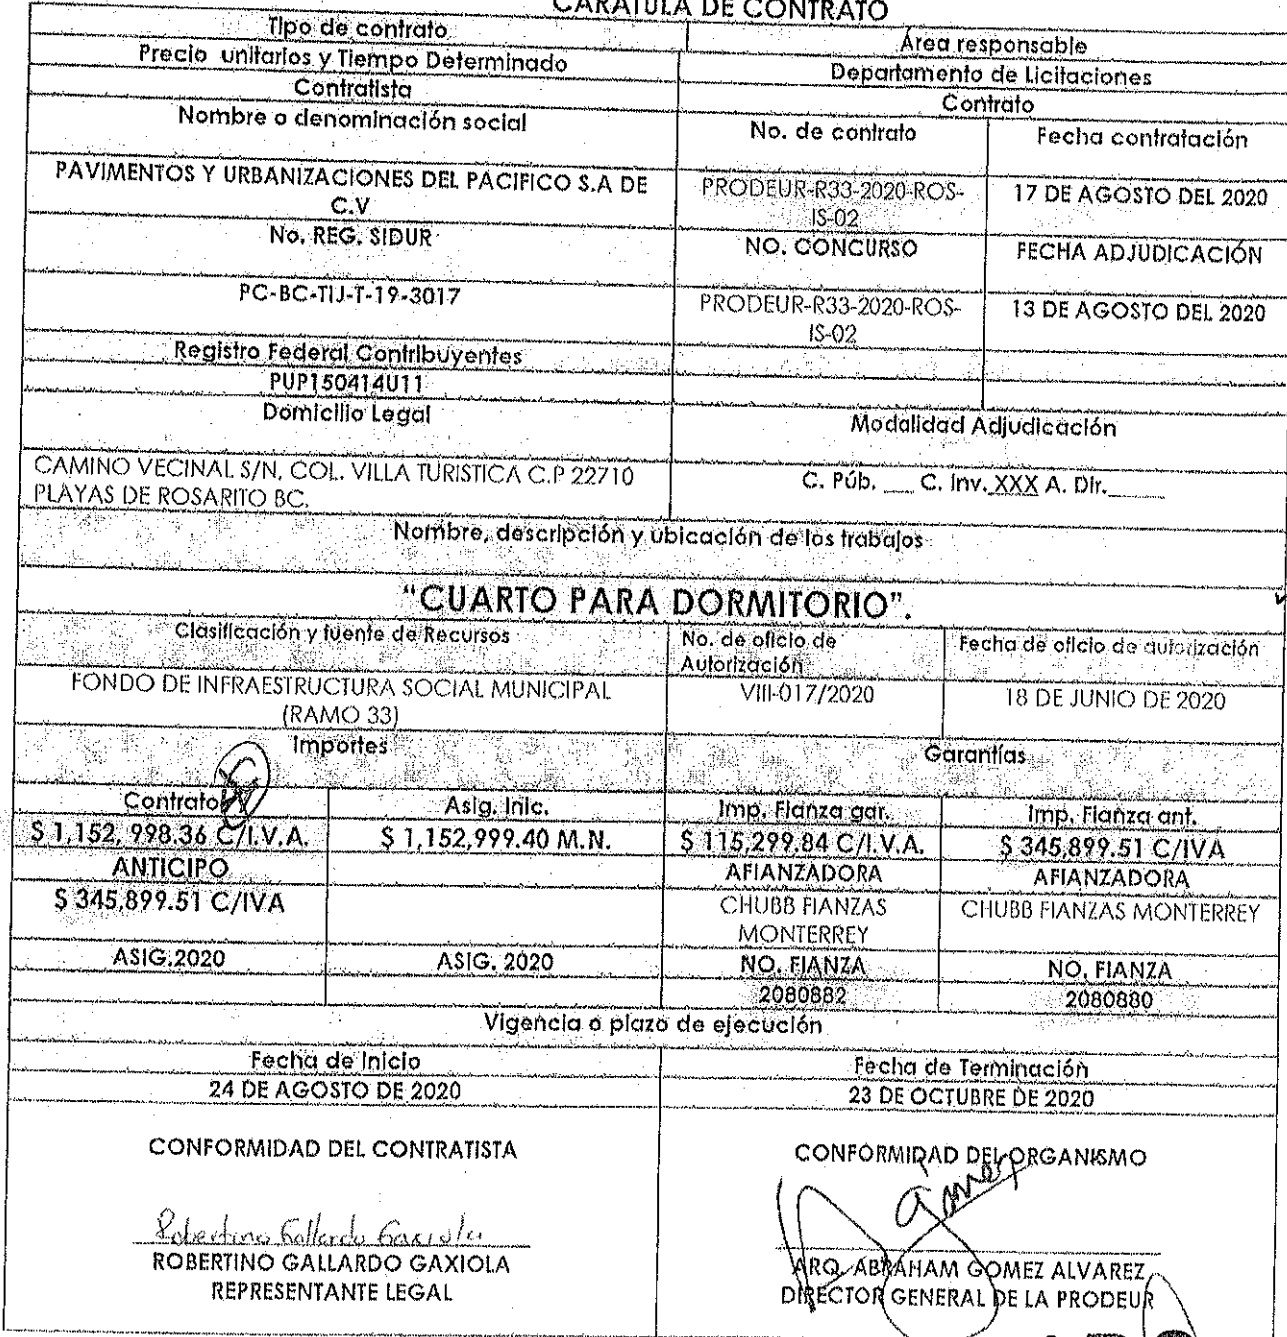 CARATULA DE CONTRATO
Tipo de contrato
Área responsable
Precio unitarios y Tiempo Determinado
Departamento de Licitaciones
Contratista
Contrato
Nombre o denominación social
No. de contrato
Fecha contratación
PAVIMENTOS Y URBANIZACIONES DEL PACIFICO S.A DE
C.V
PRODEUR-R33-2020-ROS-
IS-02
17 DE AGOSTO DEL 2020
No. REG. SIDUR
NO. CONCURSO
FECHA ADJUDICACIÓN
PC-BC-TIJ-T-19-3017
PRODEUR-R33-2020-ROS-
IS-02
13 DE AGOSTO DEL 2020
Registro Federal Contribuyentes
PUP150414U11
Domicilio Legal
Modalidad Adjudicación
CAMINO VECINAL S/N, COL. VILLA TURISTICA C.P 22710
PLAYAS DE ROSARITO BC.
C. Púb. ___ C. Inv. XXX A. Dir.______
Nombre, descripción y ubicación de los trabajos
"CUARTO PARA DORMITORIO".
Clasificación y fuente de Recursos
No. de oficio de
Autorización
Fecha de oficio de autorización
FONDO DE INFRAESTRUCTURA SOCIAL MUNICIPAL
(RAMO 33)
VIII-017/2020
18 DE JUNIO DE 2020
Importes
Garantías
Contrato
Asig. Inic.
Imp. Fianza gar.
Imp. Fianza ant.
$ 1,152, 998.36 C/I.V.A.
$ 1,152,999.40 M.N.
$ 115,299.84 C/I.V.A.
$ 345,899.51 C/IVA
ANTICIPO
AFIANZADORA
AFIANZADORA
$ 345,899.51 C/IVA
CHUBB FIANZAS
MONTERREY
CHUBB FIANZAS MONTERREY
ASIG.2020
ASIG. 2020
NO. FIANZA
NO. FIANZA
2080882
2080880
Vigencia o plazo de ejecución
Fecha de Inicio
Fecha de Terminación
24 DE AGOSTO DE 2020
23 DE OCTUBRE DE 2020
CONFORMIDAD DEL CONTRATISTA
CONFORMIDAD DEL ORGANISMO
Robertino Gallardo Gaxiola
ROBERTINO GALLARDO GAXIOLA
REPRESENTANTE LEGAL
ARQ. ABRAHAM GOMEZ ALVAREZ
DIRECTOR GENERAL DE LA PRODEUR